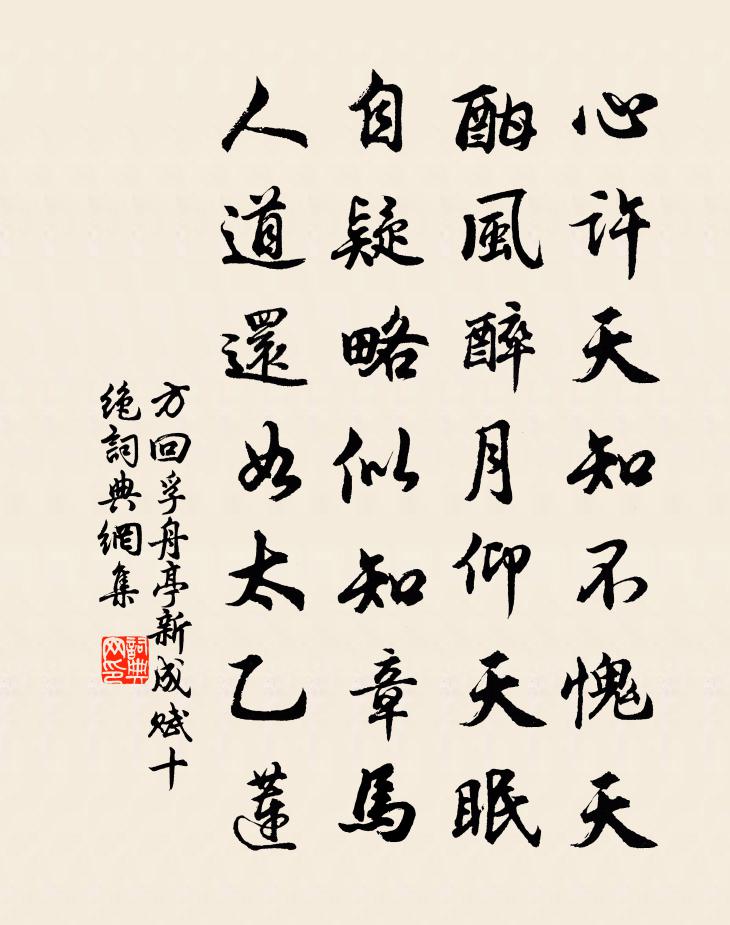 心許天知不愧天
酣風醉月仰天眠
自疑略似知章馬
人道還如太乙蓮
方回孚舟亭新成賦十
絶詞典網集
詞典
网印